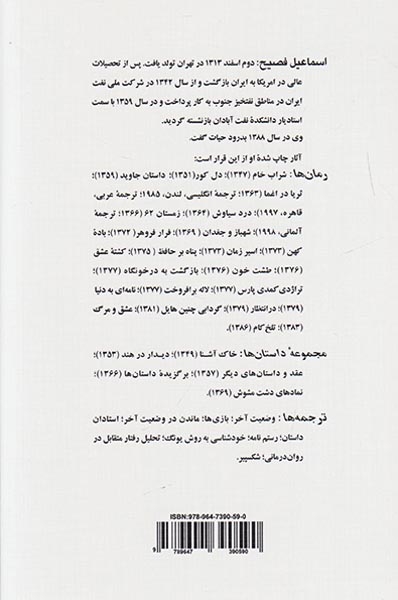 اسماعیل فصیح: دوم اسفند ۱۳۱۳ در تهران تولد یافت. پس از تحصیلات
عالی در امریکا به ایران بازگشت و از سال ۱۳۴۲ در شرکت ملی نفت
ایران در مناطق نفتخیز جنوب به کار پرداخت و در سال ۱۳۵۹ با سمت
استادیار دانشکدهٔ نفت آبادان بازنشسته گردید.
وی در سال ۱۳۸۸ بدرود حیات گفت.
آثار چاپ شدهٔ او از این قرار است:
رمان‌ها: شراب خام (۱۳۴۷)؛ دل کور (۱۳۵۱)؛ داستان جاوید (۱۳۵۹)؛
ثریا در اغما (۱۳۶۳؛ ترجمهٔ انگلیسی، لندن، ۱۹۸۵؛ ترجمهٔ عربی،
قاهره، ۱۹۹۷)؛ درد سیاوش (۱۳۶۴)؛ زمستان ۶۲ (۱۳۶۶؛ ترجمهٔ
آلمانی، ۱۹۹۸)؛ شهباز و جغدان (۱۳۶۹)؛ فرار فروهر (۱۳۷۲)؛ بادهٔ
کهن (۱۳۷۳)؛ اسیر زمان (۱۳۷۳)؛ پناه بر حافظ (۱۳۷۵)؛ کشتهٔ عشق
(۱۳۷۶)؛ طشت خون (۱۳۷۶)؛ بازگشت به درخونگاه (۱۳۷۷)؛
تراژدی کمدی پارس (۱۳۷۷)؛ لاله برافروخت (۱۳۷۷)؛ نامه‌ای به دنیا
(۱۳۷۹)؛ درانتظار (۱۳۷۹)؛ گردابی چنین هایل (۱۳۸۱)؛ عشق و مرگ
(۱۳۸۳)؛ تلخ‌کام (۱۳۸۶).
مجموعهٔ داستان‌ها: خاک آشنا (۱۳۴۹)؛ دیدار در هند (۱۳۵۳)؛
عقد و داستان‌های دیگر (۱۳۵۷)؛ برگزیدهٔ داستان‌ها (۱۳۶۶)؛
نمادهای دشت مشوش (۱۳۶۹).
ترجمه‌ها: وضعیت آخر؛ بازی‌ها؛ ماندن در وضعیت آخر؛ استادان
داستان؛ رستم نامه؛ خودشناسی به روش یونگ؛ تحلیل رفتار متقابل در
روان‌درمانی؛ شکسپیر.
ISBN: 978-964-7390-59-0
9 789647 390590